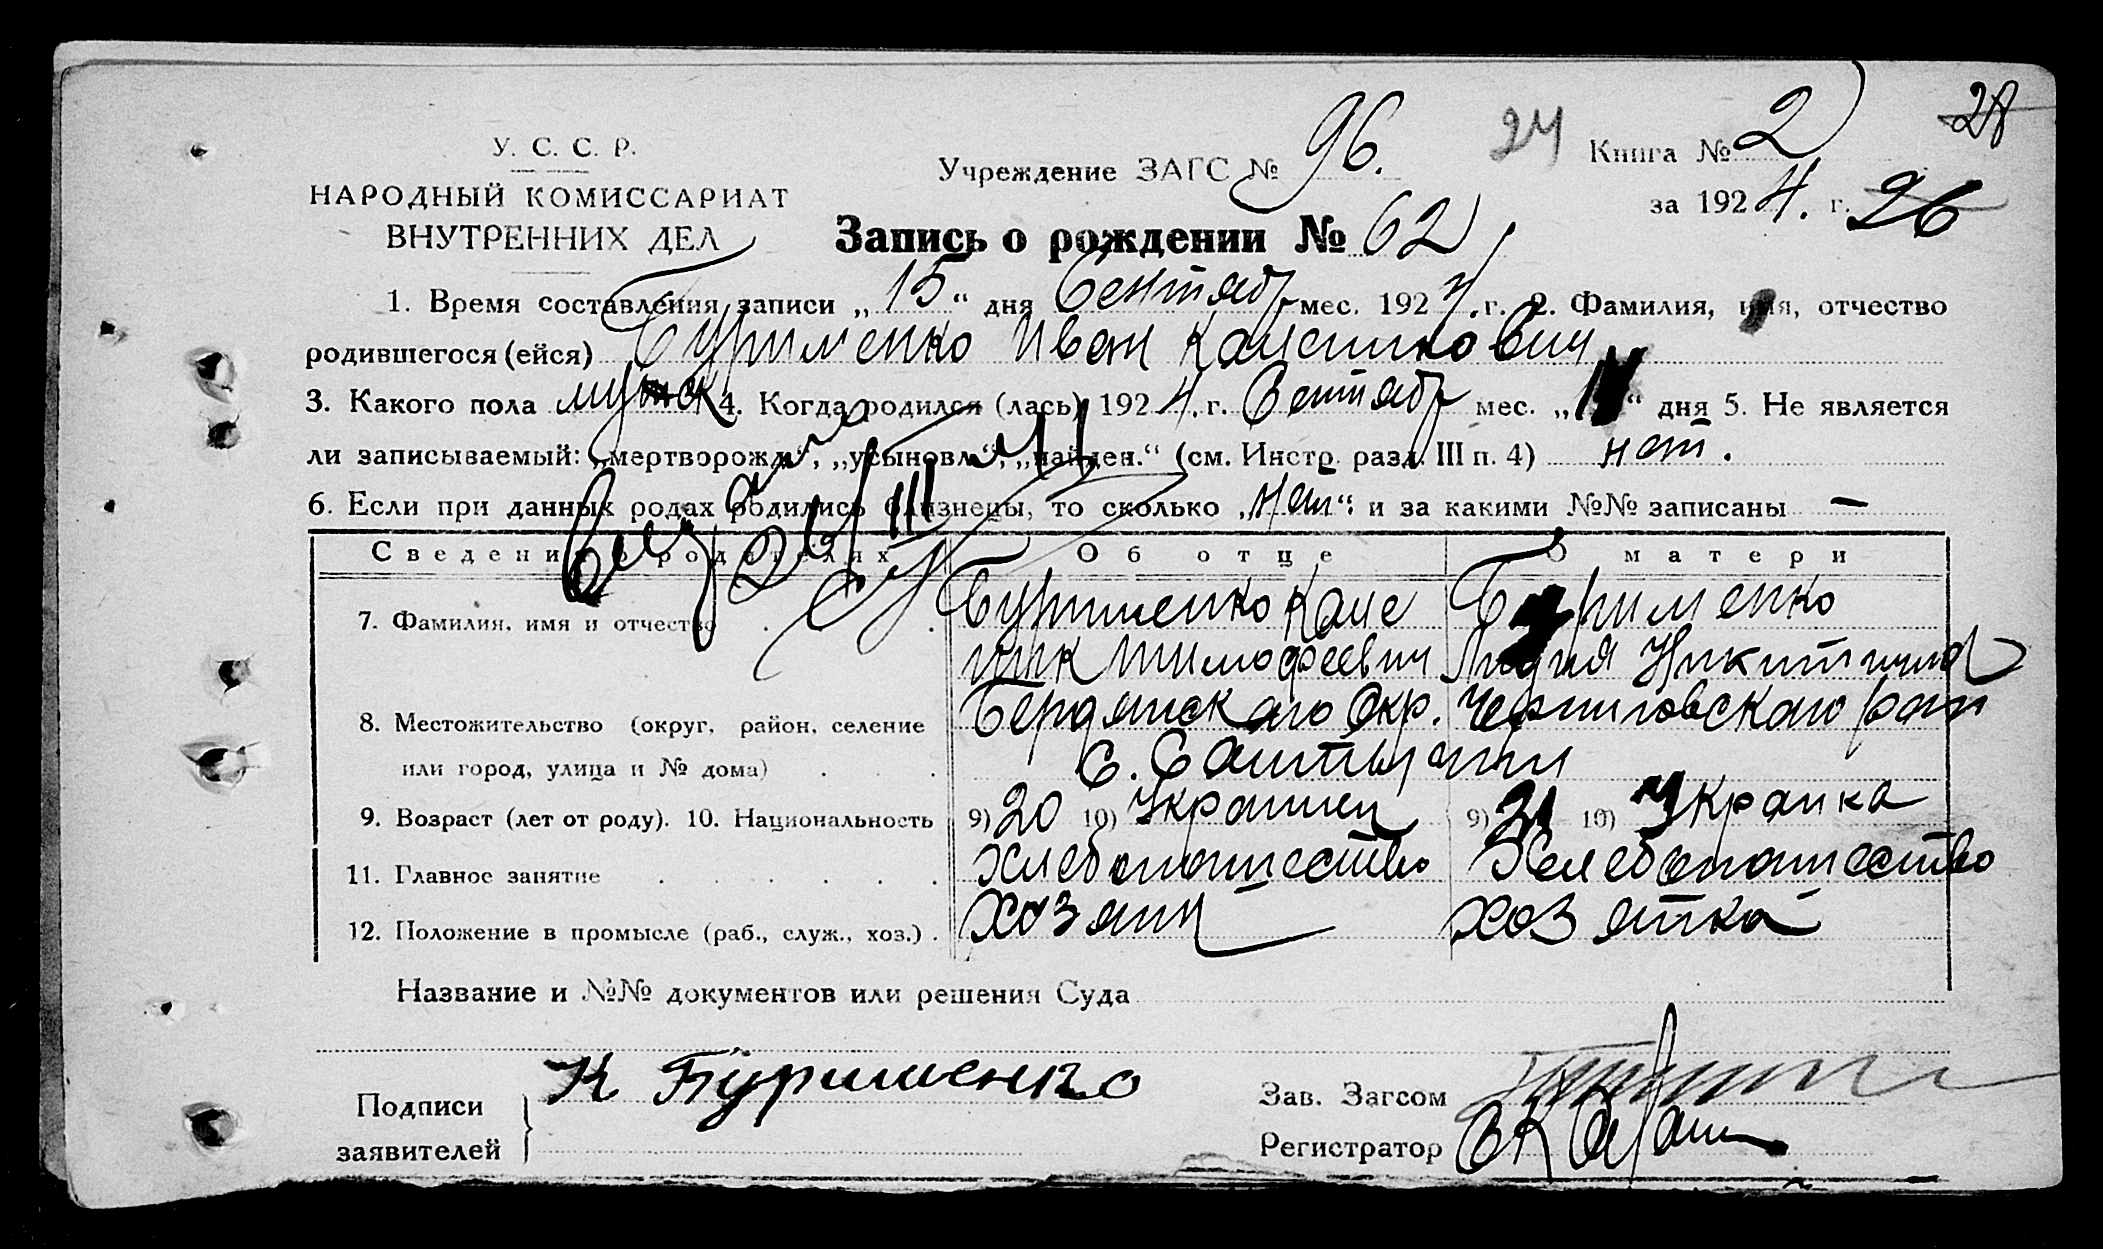 28
У. С. С. Р.
НАРОДНЫЙ КОМИССАРИАТ
ВНУТРЕННИХ ДЕЛ
Учреждение ЗАГС № 96.
24
Книга № 2
за 1924. г. 26
Запись о рождении № 62
1. Время составления записи „15“ дня Сентябр мес. 1924.г. 2. Фамилия, имя, отчество
родившегося (ейся) Буришенко Иван Каленикович
3. Какого пола мужск 4. Когда родился (лась) 1924.г. Сентябр мес. „“ дня 5. Не является
ли записываемый: „мертворожд“, „усыновл“, „найден.“ (см. Инстр. разд. III п. 4) нет.
6. Если при данных родах родились близнецы, то сколько „нет“ и за какими №№ записаны —
Сведения о родителях Об отце О матери
7. Фамилия, имя и отчество Буришенко Кале Буришенко
ник Тимофеевич Лидия Никитична
8. Местожительство (округ, район, селение Бердянского Окр. Черниговского рай
или город, улица и № дома) С.
9. Возраст (лет от роду). 10. Национальность 9) 20 10) Украинец 9) 21 10) Украика
11. Главное занятие Хлебопашество Хлебопашество
12. Положение в промысле (раб., служ., хоз.) . Хозяин Хозяйка
Название и №№ документов или решения Суда
Подписи заявителей К Буришенко
Зав. Загсом
Регистратор